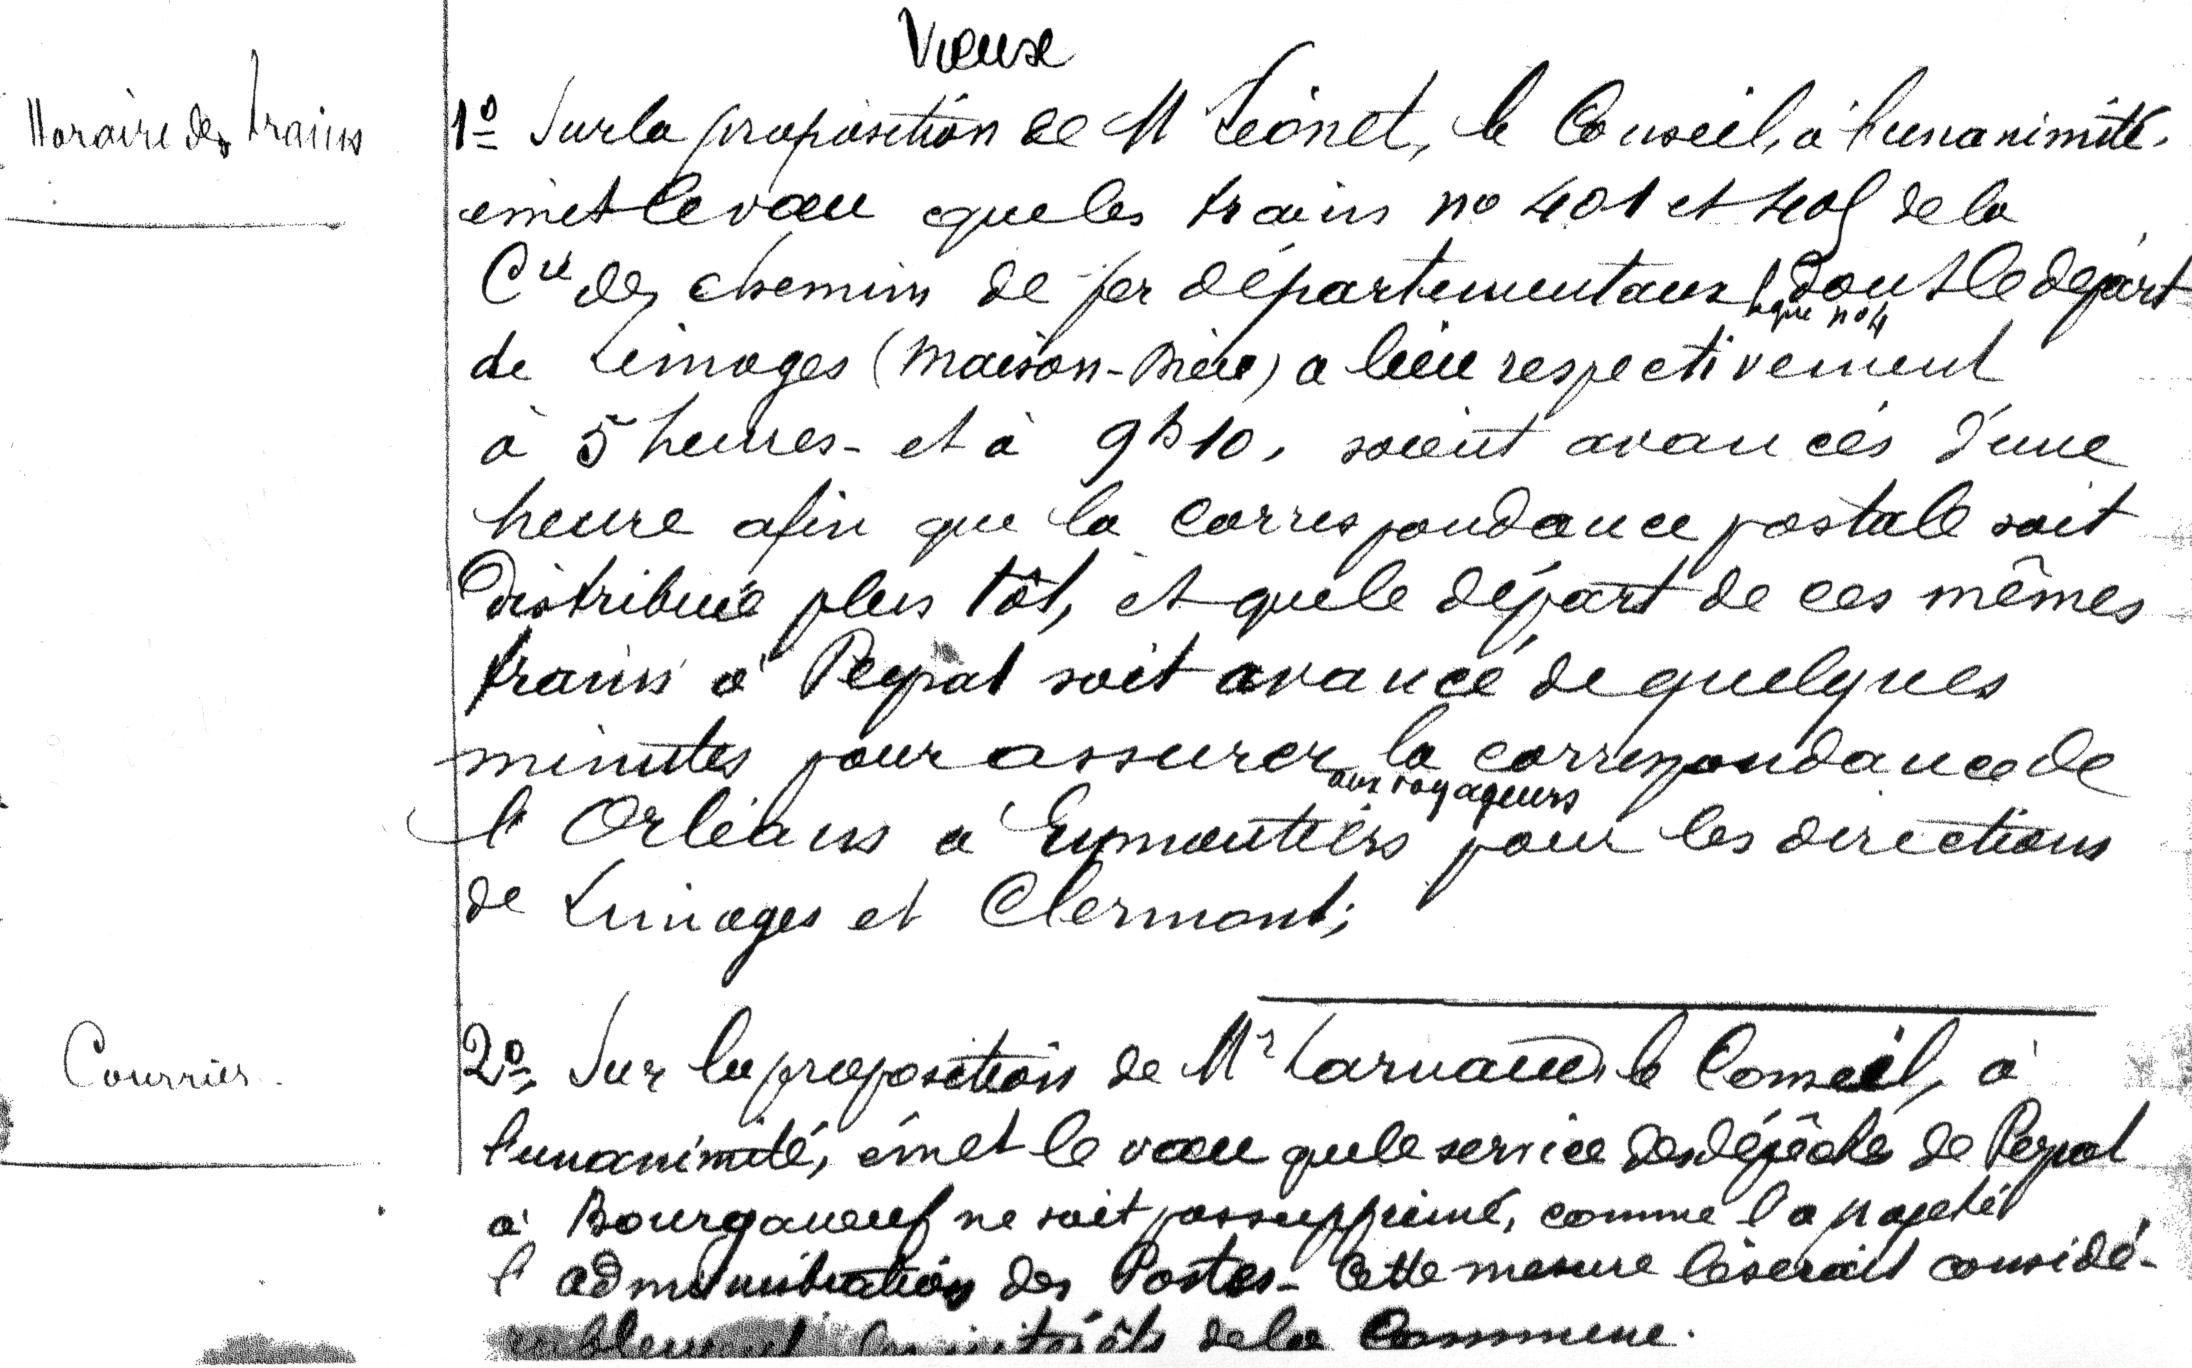 Vœux
Horaire des trains
1º Sur la proposition de M Léonet, le Conseil, à l'unanimité,
émet le vœu que les trains nº 401 et 405 de la
Cie des chemins de fer départementaux dont le départ
ligne nº 4
de Limoges (Maison-Dieu) a lieu respectivement
à 5 heures - et à 9h10, soient avancés d'une
heure afin que la correspondance postale soit
distribuée plus tôt, et que le départ de ces mêmes
trains à Peyrat soit avancé de quelques
minutes pour assurer la correspondance de
aux voyageurs
l'Orléans à Eymoutiers pour les directions
de Limoges et Clermont;
Courrier.
2º, Sur la proposition de Mr Larnaud, le Conseil, à
l'unanimité, émet le vœu que le service des dépêches de Peyrat
à Bourganeuf ne soit pas supprimé, comme l'a projeté
l'administration des Postes - Cette mesure lèserait considé-
rablement les intérêts de la Commune.